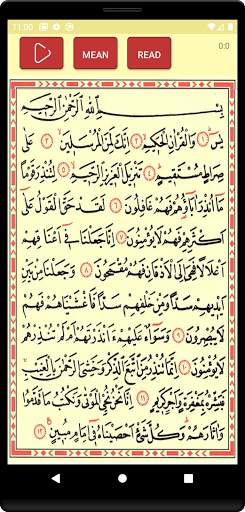 11:00
MEAN
READ
0:0
بِسْمِ اللّٰهِ الرَّحْمٰنِ الرَّحِيمِ
يٰسٓ ١ وَالْقُرْاٰنِ الْحَكِيمِ ٢ اِنَّكَ لَمِنَ الْمُرْسَلِينَ ٣ عَلٰى
صِرَاطٍ مُسْتَقِيمٍ ٤ تَنْزِيلَ الْعَزِيزِ الرَّحِيمِ ٥ لِتُنْذِرَ قَوْمًا
مَا اُنْذِرَ اٰبَاؤُهُمْ فَهُمْ غَافِلُونَ ٦ لَقَدْ حَقَّ الْقَوْلُ عَلٰى
اَكْثَرِهِمْ فَهُمْ لَا يُؤْمِنُونَ ٧ اِنَّا جَعَلْنَا فِي اَعْنَاقِهِمْ
اَغْلَالًا فَهِيَ اِلَى الْاَذْقَانِ فَهُمْ مُقْمَحُونَ ٨ وَجَعَلْنَا مِنْ بَيْنِ
اَيْدِيهِمْ سَدًّا وَمِنْ خَلْفِهِمْ سَدًّا فَاَغْشَيْنَاهُمْ فَهُمْ
لَا يُبْصِرُونَ ٩ وَسَوَاءٌ عَلَيْهِمْ ءَاَنْذَرْتَهُمْ اَمْ لَمْ تُنْذِرْهُمْ
لَا يُؤْمِنُونَ ١٠ اِنَّمَا تُنْذِرُ مَنِ اتَّبَعَ الذِّكْرَ وَخَشِيَ الرَّحْمٰنَ بِالْغَيْبِ
فَبَشِّرْهُ بِمَغْفِرَةٍ وَاَجْرٍ كَرِيمٍ ١١ اِنَّا نَحْنُ نُحْيِ الْمَوْتٰى وَنَكْتُبُ مَا قَدَّمُوا
وَاٰثَارَهُمْ وَكُلَّ شَيْءٍ اَحْصَيْنَاهُ فِي اِمَامٍ مُبِينٍ ١٢